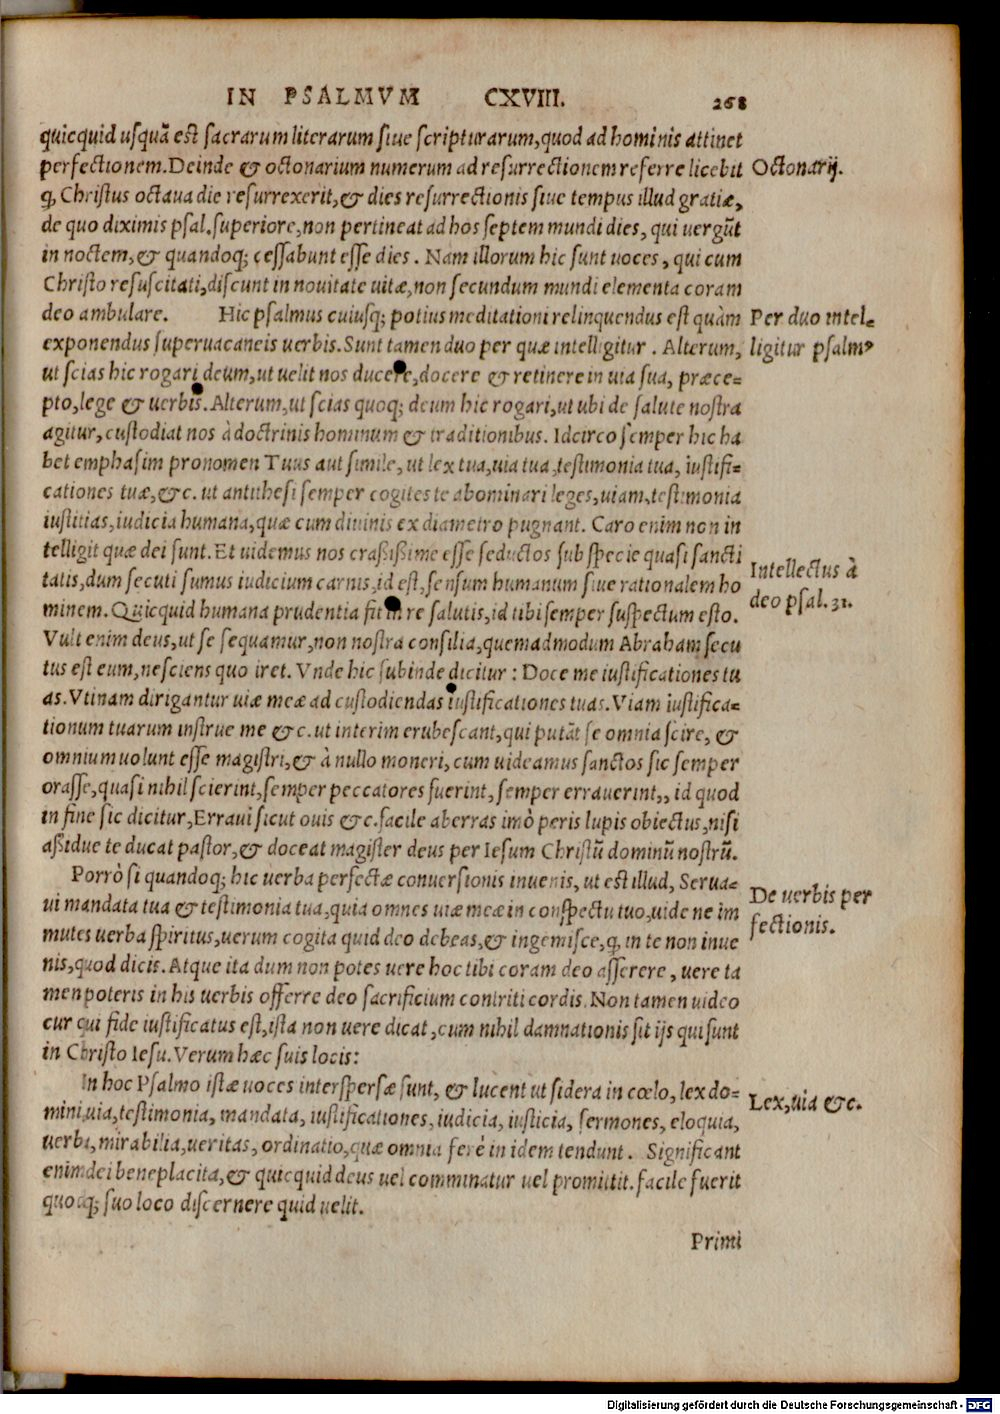 IN PSALMVM CXVIII. 268
quicquid usquã est sacrarum literarum siue scripturarum, quod ad hominis attinet
perfectionem. Deinde & octonarium numerum ad resurrectionem referre licebit
Octonarij.
q, Christus octaua die resurrexerit, & dies resurrectionis siue tempus illud gratiæ,
de quo diximis psal. superiore, non pertineat ad hos septem mundi dies, qui uergũt
in noctem, & quandoq; cessabunt esse dies. Nam illorum hic sunt uoces, qui cum
Christo resuscitati, discunt in nouitate uitæ, non secundum mundi elementa coram
deo ambulare. Hic psalmus cuiusq; potius meditationi relinquendus est quàm
Per duo intel=
exponendus superuacaneis uerbis. Sunt tamen duo per quæ intelligitur. Alterum,
ligitur psalmꝰ
ut scias hic rogari deum, ut uelit nos ducere, docere & retinere in uia sua, præce=
pto, lege & uerbis. Alterum, ut scias quoq; deum hic rogari, ut ubi de salute nostra
agitur, custodiat nos à doctrinis hominum & traditionibus. Idcirco semper hic ha
bet emphasim pronomen Tuus aut simile, ut lex tua, uia tua, testimonia tua, iustifi=
cationes tuæ, &c. ut antithesi semper cogites te abominari leges, uiam, testimonia
iustitias, iudicia humana, quæ cum diuinis ex diametro pugnant. Caro enim non in
telligit quæ dei sunt. Et uidemus nos craßißime esse seductos sub specie quasi sancti
Intellectus à
tatis, dum secuti sumus iudicium carnis, id est, sensum humanum siue rationalem ho
deo psal. 31.
minem. Quicquid humana prudentia fit in re salutis, id tibi semper suspectum esto.
Vult enim deus, ut se sequamur, non nostra consilia, quemadmodum Abraham secu
tus est eum, nesciens quo iret. Vnde hic subinde dicitur: Doce me iustificationes tu
as. Vtinam dirigantur uiæ meæ ad custodiendas iustificationes tuas. Viam iustifica=
tionum tuarum instrue me &c. ut interim erubescant, qui putãt se omnia scire, &
omnium uolunt esse magistri, & à nullo moneri, cum uideamus sanctos sic semper
orasse, quasi nihil scierint, semper peccatores fuerint, semper errauerint,, id quod
in fine sic dicitur, Erraui sicut ouis &c. facile aberras imò peris lupis obiectus, nisi
aßidue te ducat pastor, & doceat magister deus per Iesum Christũ dominũ nostrũ.
Porrò si quandoq; hic uerba perfectæ conuersionis inuenis, ut est illud, Serua=
De uerbis per
ui mandata tua & testimonia tua, quia omnes uiæ meæ in conspectu tuo, uide ne im
fectionis.
mutes uerba spiritus, uerum cogita quid deo debeas, & ingemisce, q, in te non inue
nis, quod dicis. Atque ita dum non potes uere hoc tibi coram deo asserere, uere ta
men poteris in his uerbis offerre deo sacrificium contriti cordis. Non tamen uideo
cur qui fide iustificatus est, ista non uere dicat, cum nihil damnationis sit ijs qui sunt
in Christo Iesu. Verum hæc suis locis:
In hoc Psalmo istæ uoces interspersæ sunt, & lucent ut sidera in cœlo, lex do=
Lex, uia &c.
mini, uia, testimonia, mandata, iustificationes, iudicia, iusticia, sermones, eloquia,
uerba, mirabilia, ueritas, ordinatio, quæ omnia ferè in idem tendunt. Significant
enim dei beneplacita, & quicquid deus uel comminatur uel promittit. facile fuerit
quoq; suo loco discernere quid uelit.
Primi
Digitalisierung gefördert durch die Deutsche Forschungsgemeinschaft - DFG